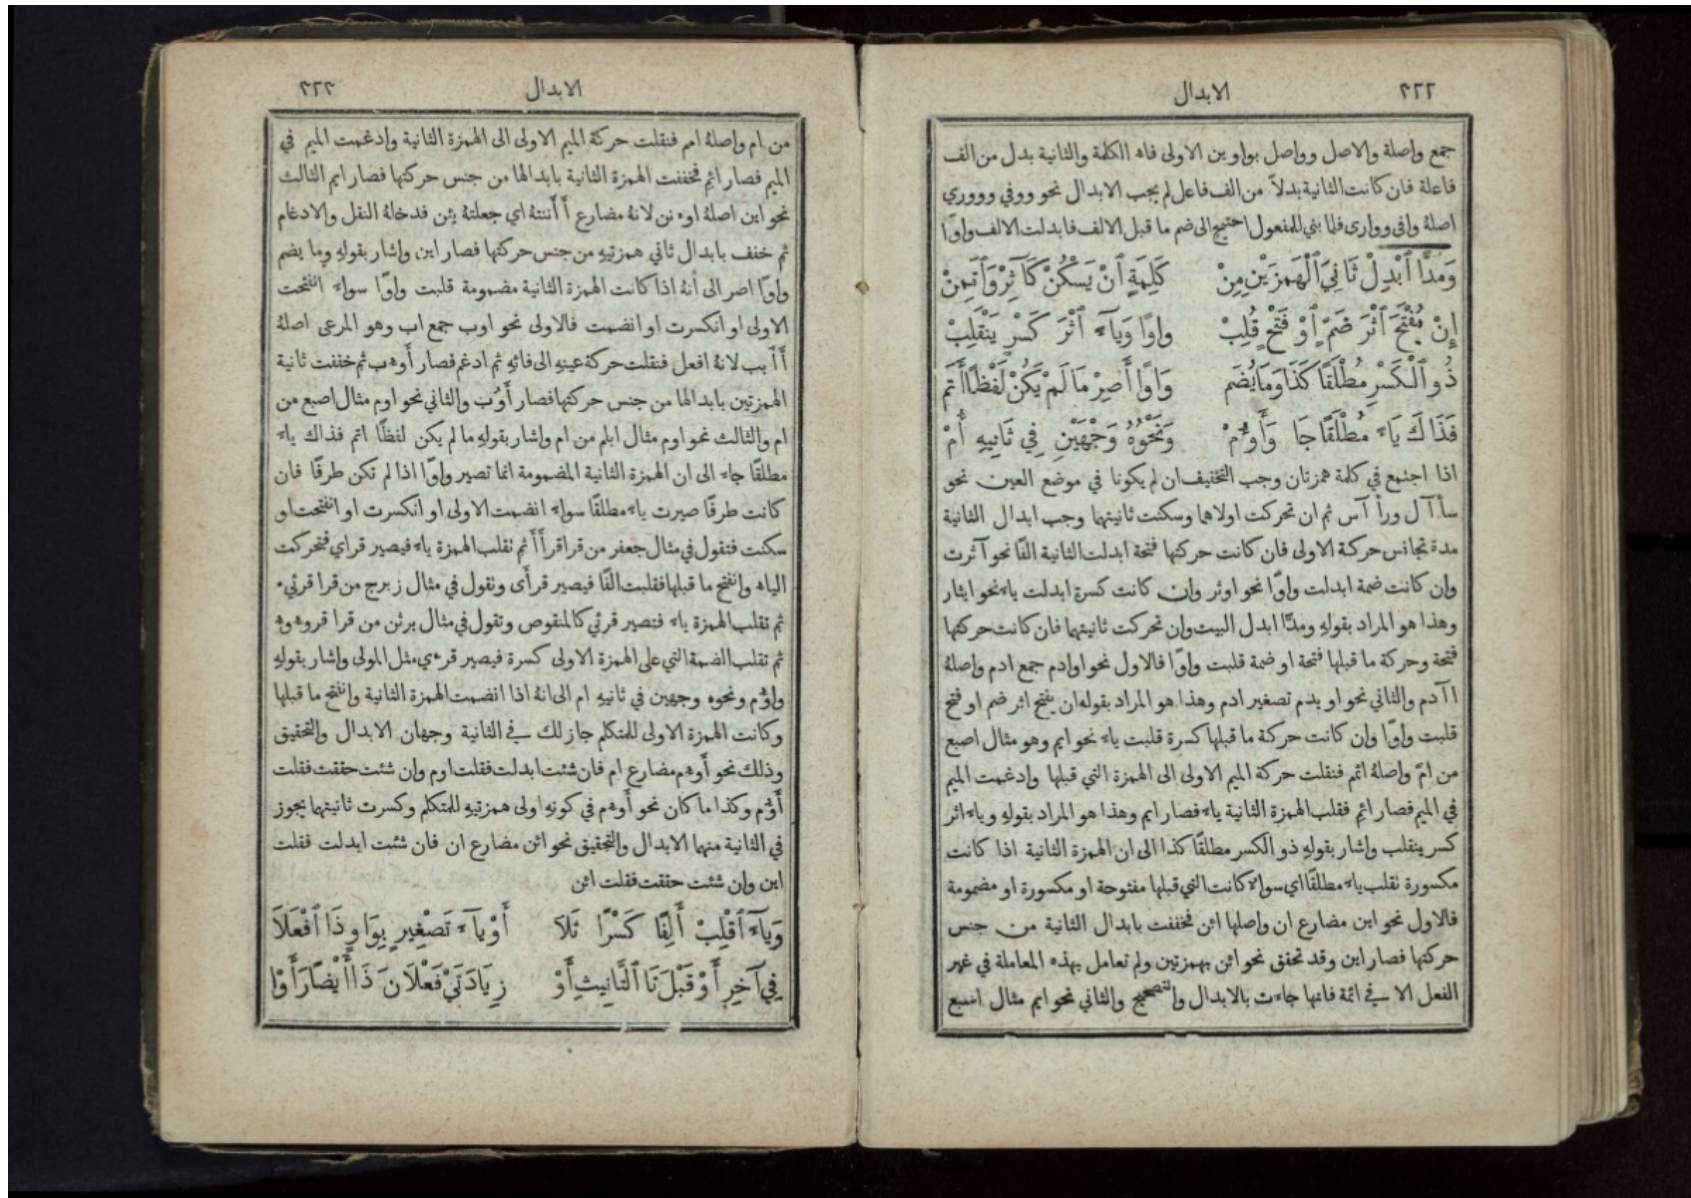 ٣٢٢
الابدال
جمع واصلة والاصل وواصل بواوين الاولى فاء الكلمة والثانية بدل من الف
فاعلة فان كانت الثانية بدلاً من الف فاعل لم يجب الابدال نحو ووفي وووري
اصلهُ وافى ووارى فلما بني للمفعول احتيج الى ضم ما قبل الالف فابدلت الالف واوًا
وَمَدًّا ٱبْدِلْ ثَانِيَ ٱلْهَمْزَيْنِ مِنْ كِلْمَةٍ ٱنْ يَسْكُنْ كَآثِرْ وَٱتَمِنْ
إِنْ يُفْتَحَ ٱثْرَ ضَمٍّ ٱوْ فَتْحٍ قُلِبْ وَاوًا وَيَآءً ٱثْرَ كَسْرٍ يَنْقَلِبْ
ذُو ٱلْكَسْرِ مُطْلَقًا كَذَا وَمَا يُضَم وَاوًا أَصِرْ مَا لَمْ يَكُنْ لَفْظًا أَتَم
فَذَاكَ يَاءً مُطْلَقًا جَا وَأَوُمْ وَنَحْوُهُ وَجْهَيْنِ فِي ثَانِيهِ أُمْ
اذا اجتمع في كلمة همزتان وجب التخفيف ان لم يكونا في موضع العين نحو
سأآل ورأآس ثم ان تحركت اولاهما وسكنت ثانيتهما وجب ابدال الثانية
مدة تجانس حركة الاولى فان كانت حركتها فتحة ابدلت الثانية الفًا نحو آثرت
وان كانت ضمة ابدلت واوًا نحو اوثر وان كانت كسرة ابدلت ياءً نحو ايثار
وهذا هو المراد بقولهِ ومدًّا ابدل البيت وان تحركت ثانيتهما فان كانت حركتها
فتحة وحركة ما قبلها فتحة او ضمة قلبت واوًا فالاول نحو اوادم جمع ادم واصلهُ
اآدم والثاني نحو اويدم تصغير ادم وهذا هو المراد بقوله ان يفتح اثر ضم او فتح
قلبت واوًا وان كانت حركة ما قبلها كسرة قلبت ياءً نحو ايم وهو مثال اصبع
من امّ واصلهُ ائم فنقلت حركة الميم الاولى الى الهمزة التي قبلها وادغمت الميم
في الميم فصار ائم فقلب الهمزة الثانية ياء فصار ايم وهذا هو المراد بقولهِ وياءً اثر
كسر ينقلب واشار بقولهِ ذو الكسر مطلقًا كذا الى ان الهمزة الثانية اذا كانت
مكسورة تقلب ياءً مطلقًا اي سواء كانت التي قبلها مفتوحة او مكسورة او مضمومة
فالاول نحو اين مضارع ان واصلها ائن فخففت بابدال الثانية من جنس
حركتها فصار اين وقد تحقق نحو ائن بهمزتين ولم تعامل بهذه المعاملة في غير
الفعل الا في ائمة فانها جاءت بالابدال والتصحيح والثاني نحو ايم مثال اصبع
الابدال
٣٢٣
من ام واصلهُ امم فنقلت حركة الميم الاولى الى الهمزة الثانية وادغمت الميم في
الميم فصار ائمِ فخففت الهمزة الثانية بابدالها من جنس حركتها فصار ايم الثالث
نحو اين اصلهُ اوءنن لانهُ مضارع أَأْننتهُ اي جعلتهُ يئن فدخلهُ النقل والادغام
ثم خفف بابدال ثاني همزتيهِ من جنس حركتها فصار اين واشار بقولهِ وما يضم
واوًا اصر الى أنهُ اذا كانت الهمزة الثانية مضمومة قلبت واوًا سواء انفتحت
الاولى او انكسرت او انضمت فالاولى نحو اوب جمع اب وهو المرعى اصلهُ
أَأْبب لانهُ افعل فنقلت حركة عينهِ الى فائهِ ثم ادغم فصار أَوءب ثم خففت ثانية
الهمزتين بابدالها من جنس حركتها فصار أَوُب والثاني نحو اوم مثال اصبع من
ام والثالث نحو اوم مثال ابلم من ام واشار بقولهِ ما لم يكن لفظًا اتم فذاك ياءً
مطلقًا جاء الى ان الهمزة الثانية المضمومة انما تصير واوًا اذا لم تكن طرفًا فان
كانت طرفًا صيرت ياء مطلقًا سواء انضمت الاولى او انكسرت او انفتحت او
سكنت فتقول في مثال جعفر من قرا قرأَأ ثم تقلب الهمزة ياء فيصير قراي فتحركت
الياء وانفتح ما قبلها فقلبت الفًا فيصير قرأَى وتقول في مثال زبرج من قرا قرئيء
ثم تقلب الهمزة ياء فتصير قرئي كالمنقوص وتقول في مثال برثن من قرا قروءوء
ثم تقلب الضمة التي على الهمزة الاولى كسرة فيصير قرءي مثل المولى واشار بقولهِ
واؤم ونحوه وجهين في ثانيهِ ام الى انهُ اذا انضمت الهمزة الثانية وانفتح ما قبلها
وكانت الهمزة الاولى للمتكلم جاز لك في الثانية وجهان الابدال والتحقيق
وذلك نحو أَوءم مضارع ام فان شئت ابدلت فقلت اوم وان شئت حققت فقلت
أَؤُم وكذا ما كان نحو أَوءم في كونهِ اولى همزتيهِ للمتكلم وكسرت ثانيتهما يجوز
في الثانية منهما الابدال والتحقيق نحو ائن مضارع ان فان شئت ابدلت فقلت
اين وان شئت حققت فقلت ائن
وَيَآءً ٱقْلِبْ أَلِفًا كَسْرًا تَلَا أَوْ يَآءَ تَصْغِيرٍ بِوَاوٍ ذَا ٱفْعَلَا
فِي آخِرٍ أَوْ قَبْلَ تَا ٱلتَّانِيثِ أَوْ زِيَادَتَيْ فَعْلَانَ ذَا أَيْضًا رَأَوْا